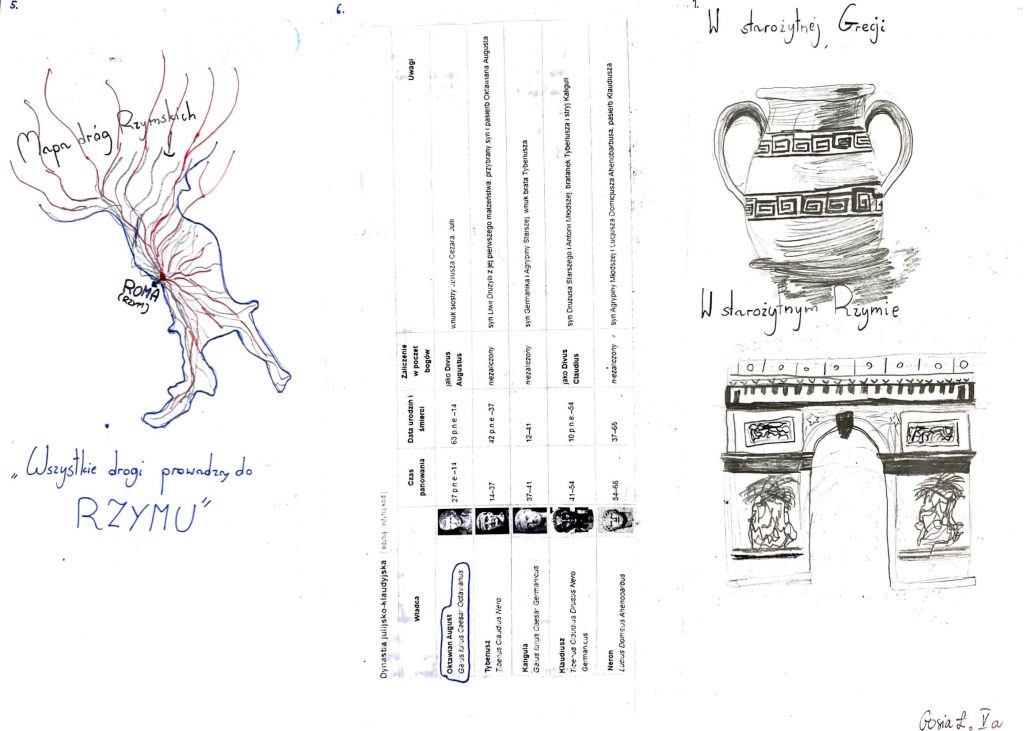 5.
Mapa dróg Rzymskich
ROMA
(RZYM)
„Wszystkie drogi prowadzą do
RZYMU"
6.
Dynastia julijsko-klaudyjska [edytuj · edytuj kod]
Władca Czas panowania Data urodzin i śmierci Zaliczenie w poczet bogów Uwagi
Oktawian August
Gaius Iulius Caesar Octavianus
27 p.n.e.–14 63 p.n.e.–14 jako Divus Augustus wnuk siostry Juliusza Cezara, Julii
Tyberiusz
Tiberius Claudius Nero
14–37 42 p.n.e.–37 niezaliczony syn Liwii Druzylli z jej pierwszego małżeństwa, przybrany syn i pasierb Oktawiana Augusta
Kaligula
Gaius Iulius Caesar Germanicus
37–41 12–41 niezaliczony syn Germanika i Agrypiny Starszej, wnuk brata Tyberiusza
Klaudiusz
Tiberius Claudius Drusus Nero
Germanicus
41–54 10 p.n.e.–54 jako Divus Claudius syn Druzusa Starszego i Antonii Młodszej, bratanek Tyberiusza i stryj Kaliguli
Neron
Lucius Domitius Ahenobarbus
54–68 37–68 niezaliczony syn Agrypiny Młodszej i Lucjusza Domicjusza Ahenobarbusa, pasierb Klaudiusza
7.
W starożytnej Grecji
W starożytnym Rzymie
Gosia Ł. Va